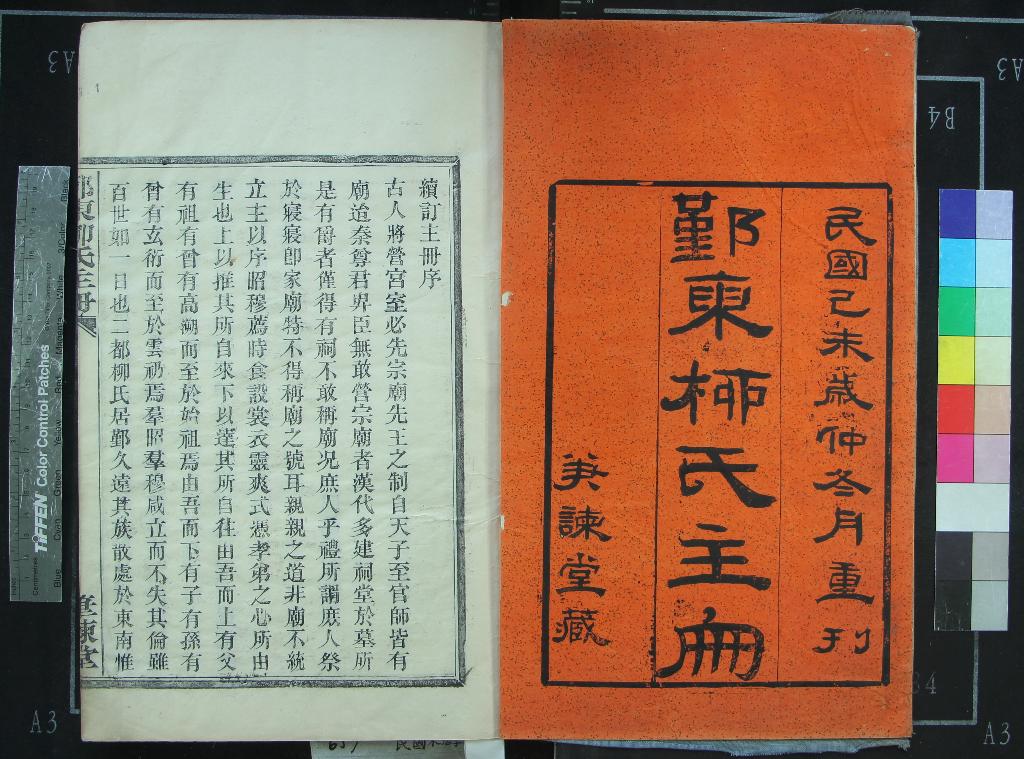 民國己未歲仲冬月重刊
鄞東栁氏主冊
美諫堂藏
續訂主冊序
古人將營宮室必先宗廟先王之制自天子至官師皆有
廟道秦尊君畀臣無敢營宗廟者漢代多建祠堂於墓所
是有爵者僅得有祠不敢稱廟况庶人乎禮所謂庶人祭
於寢寢卽家廟特不得稱廟之號耳親親之道非廟不統
立主以序昭穆薦時食設裳衣靈爽式憑孝弟之心所由
生也上以推其所自來下以逹其所自往由吾而上有父
有祖有曾有高溯而至於始祖焉由吾而下有子有孫有
曾有玄衍而至於雲礽焉羣昭羣穆咸立而不失其倫雖
百世如一日也二都柳氏居鄞久遠其族散處於東南惟
TIFFEN Color Control Patches
A3
A3
B4
A3
A3